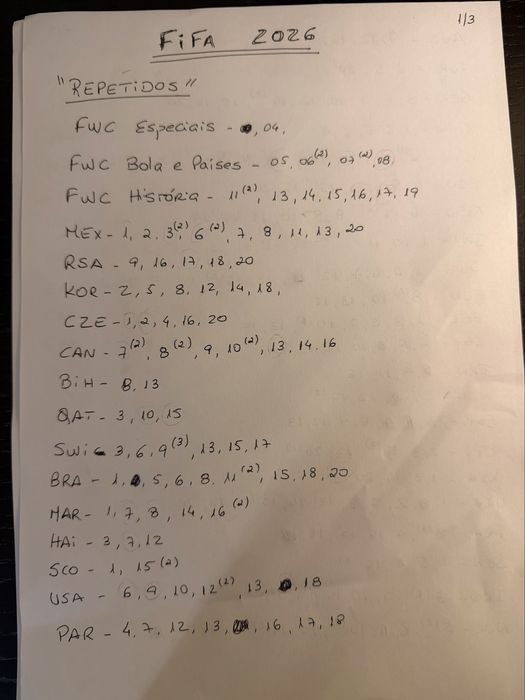 1/3
FiFA 2026
"REPETIDOS"
FWC Especiais - , 04,
FWC Bola e Países - 05, 06(2), 07(2), 08,
FWC História - 11(2), 13, 14, 15, 16, 17, 19
MEX - 1, 2, 3(2), 6(2), 7, 8, 11, 13, 20
RSA - 9, 16, 17, 18, 20
KOR - 2, 5, 8, 12, 14, 18,
CZE - 1, 2, 4, 16, 20
CAN - 7(2), 8(2), 9, 10(2), 13, 14, 16
BiH - 8, 13
QAT - 3, 10, 15
Swi - 3, 6, 9(3), 13, 15, 17
BRA - 1, , 5, 6, 8, 11(2), 15, 18, 20
MAR - 1, 7, 8, 14, 16(2)
HAi - 3, 7, 12
SCO - 1, 15(2)
USA - 6, 9, 10, 12(2), 13, , 18
PAR - 4, 7, 12, 13, , 16, 17, 18